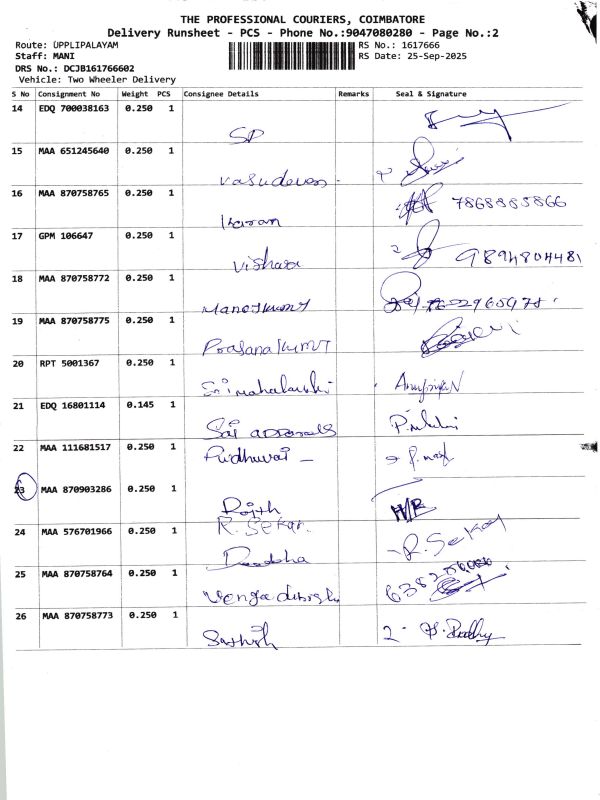 THE PROFESSIONAL COURIERS, COIMBATORE
Delivery Runsheet - PCS - Phone No.:9047080280 - Page No.:2
Route: UPPLIPALAYAM
RS No.: 1617666
Staff: MANI
RS Date: 25-Sep-2025
DRS No.: DCJB161766602
Vehicle: Two Wheeler Delivery
S No Consignment No Weight PCS Consignee Details Remarks Seal & Signature
14 EDQ 700038163 0.250 1
SP
15 MAA 651245640 0.250 1
Vasudevan
16 MAA 870758765 0.250 1
Karan 7868885866
17 GPM 106647 0.250 1
Vishaa 9894804481
18 MAA 870758772 0.250 1
Manojkumr
19 MAA 870758775 0.250 1
Prasanakumr
20 RPT 5001367 0.250 1
Sri mahalakshi
21 EDQ 16801114 0.145 1
Sai
22 MAA 111681517 0.250 1
Pudhuvai -
23 MAA 870903286 0.250 1
Rojth H/R
R. Sekar.
24 MAA 576701966 0.250 1
R. Sekar
25 MAA 870758764 0.250 1
26 MAA 870758773 0.250 1
Sathish